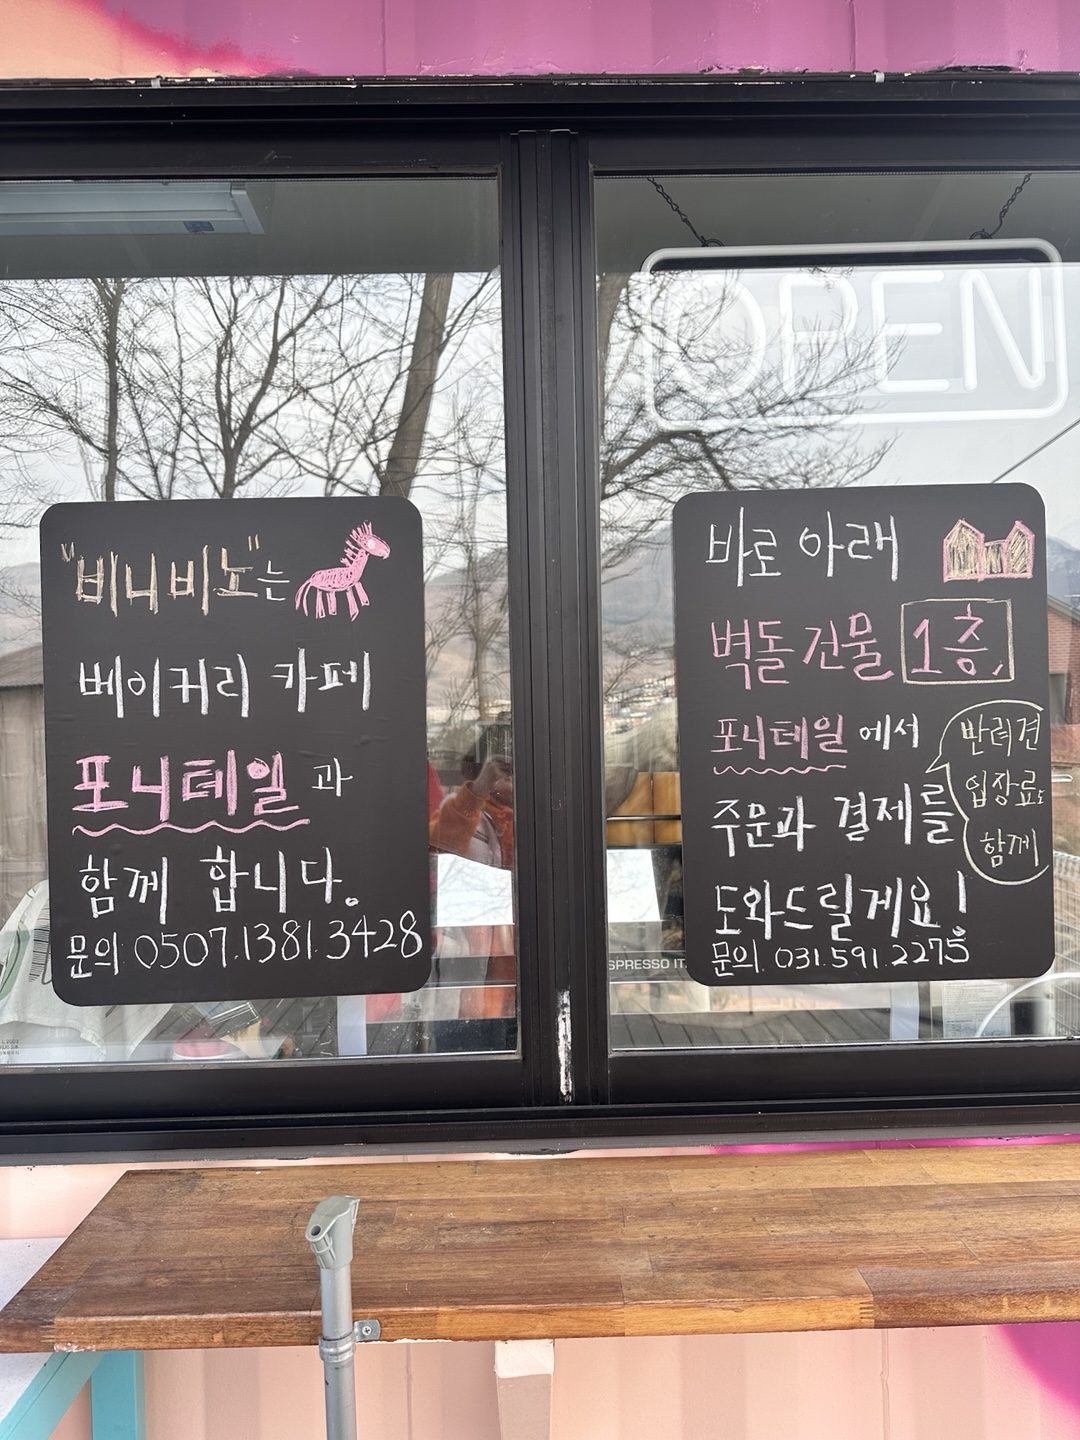 OPEN
"비니비노"는
베이커리 카페
포니테일 과
함께 합니다.
문의. 0507.1381.3428
바로 아래
벽돌 건물 1층,
포니테일 에서
주문과 결제를
도와드릴게요!
문의. 031.591.2275
반려견
입장료도
함께
SPRESSO IT